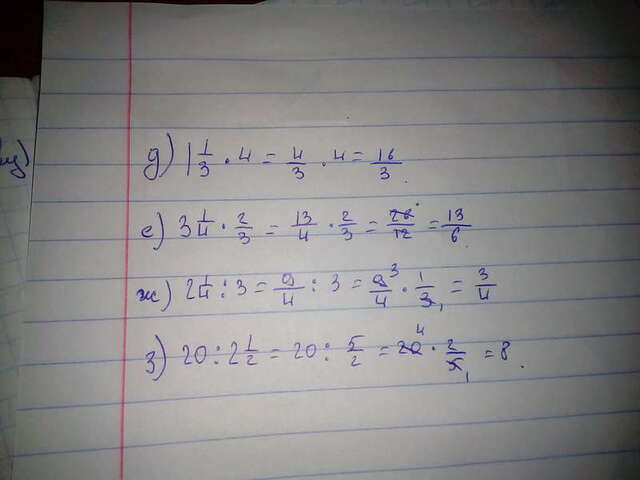 д) 1 1/3 · 4 = 4/3 · 4 = 16/3
е) 3 1/4 · 2/3 = 13/4 · 2/3 = 26/12 = 13/6
ж) 2 1/4 : 3 = 9/4 : 3 = 9³/4 · 1/3₁ = 3/4
з) 20 : 2 1/2 = 20 : 5/2 = 20⁴ · 2/5₁ = 8.